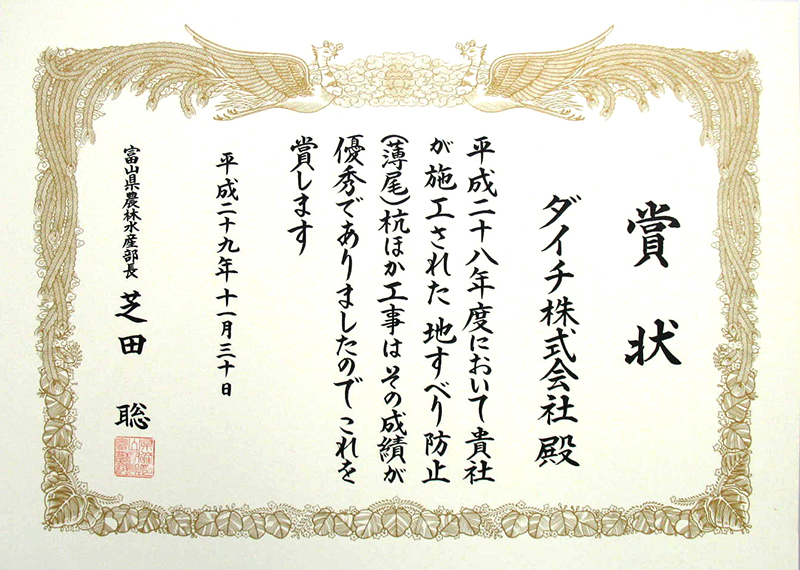 賞状
ダイチ株式会社 殿
平成二十八年度において貴社
が施工された 地すべり防止
(薄尾)杭ほか工事はその成績が
優秀でありましたのでこれを
賞します
平成二十九年十一月三十日
富山県農林水産部長 芝田 聡